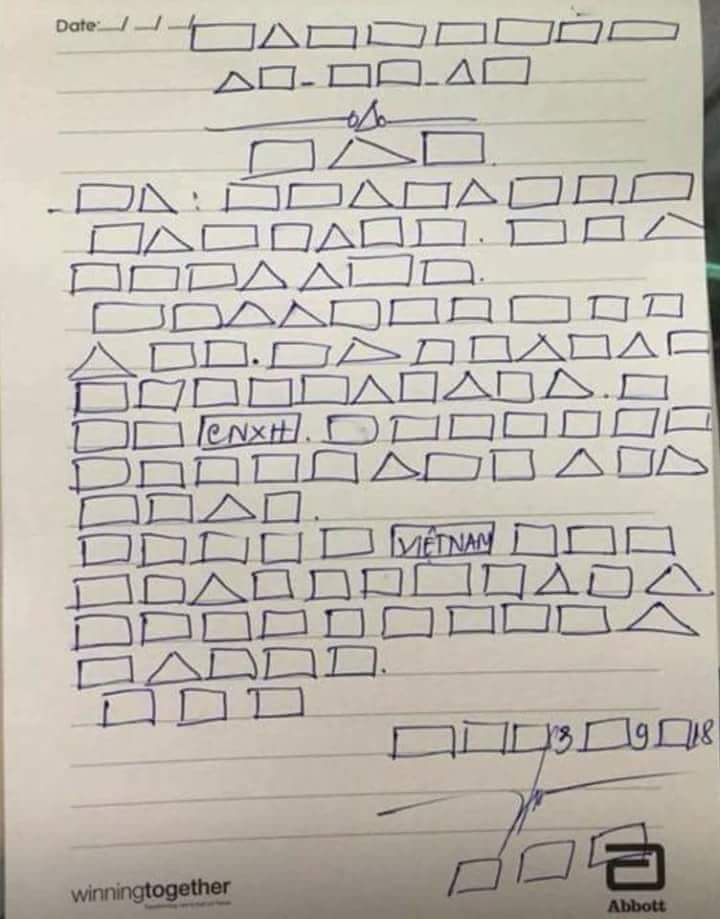 Date: / /
CNXH
VIỆTNAM
13 9 18
winningtogether
Abbott